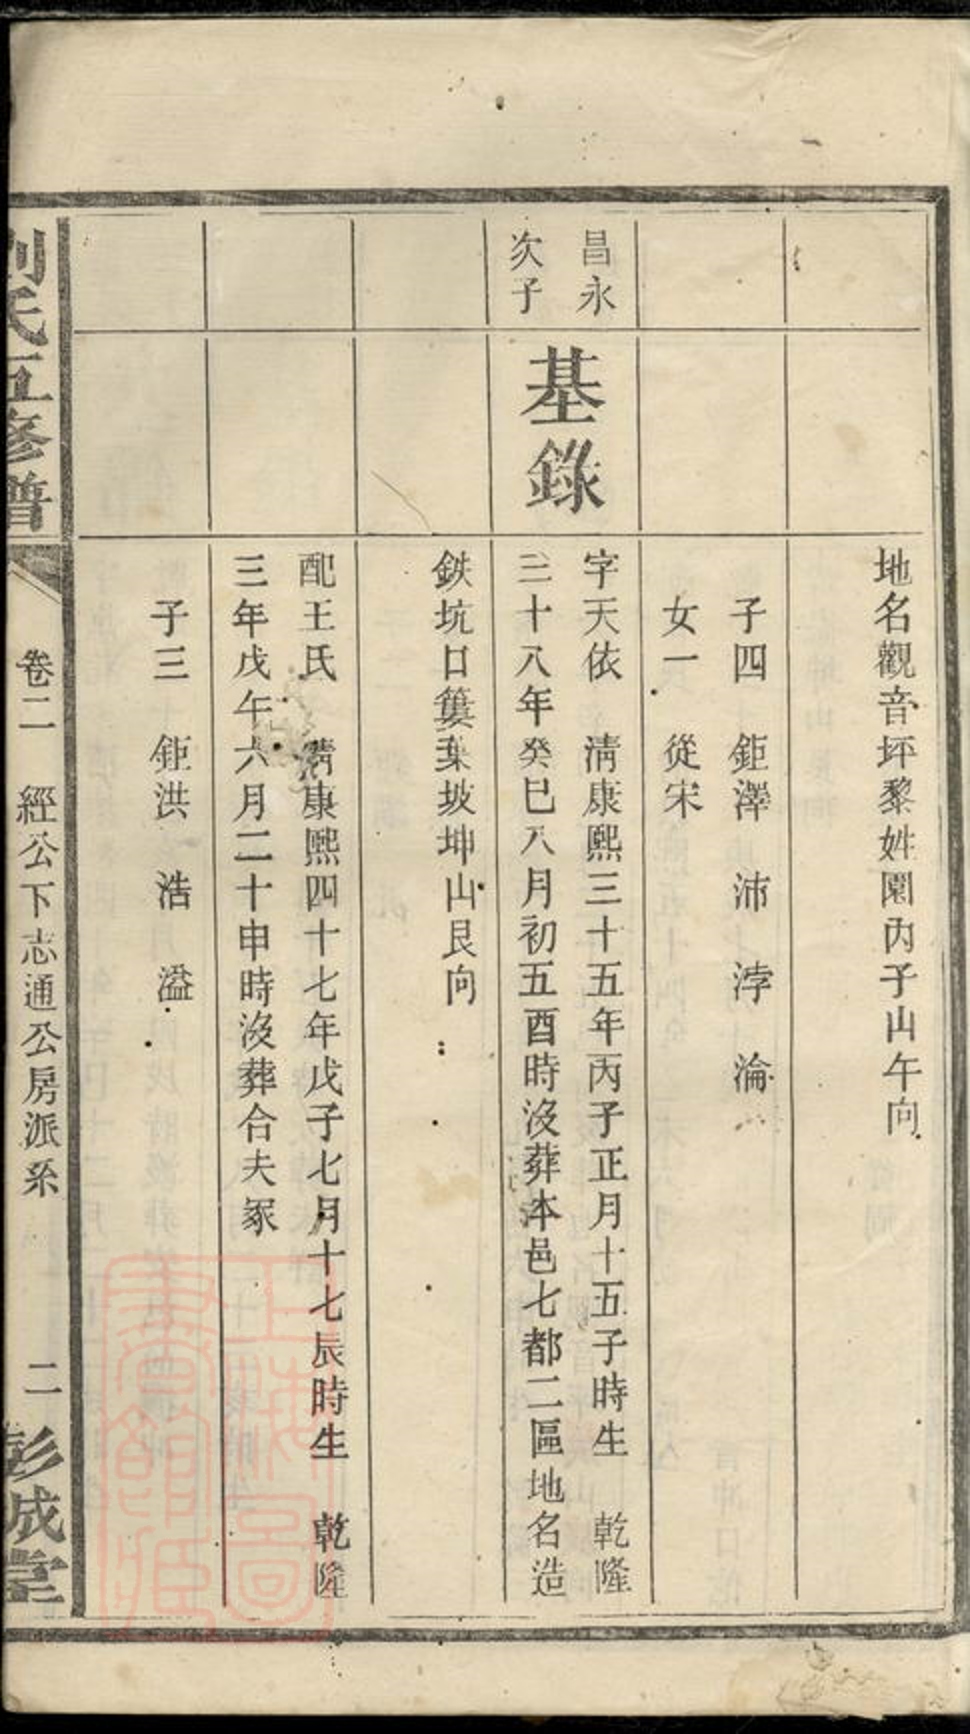 地名觀音坪黎姓園內子山午向
子四　鉅澤　沛　渟　淪
女一　從宋
昌永
次子
基錄
字天依　清康熙三十五年丙子正月十五子時生　乾隆
三十八年癸巳八月初五酉時沒葬本邑七都二區地名造
鉄坑口簍葉坡坤山艮向
配王氏　清康熙四十七年戊子七月十七辰時生　乾隆
三年戊午六月二十申時沒葬合夫冢
子三　鉅洪　浩　溢
劉氏五修譜　卷二　經公下志通公房派系　二　彭城堂